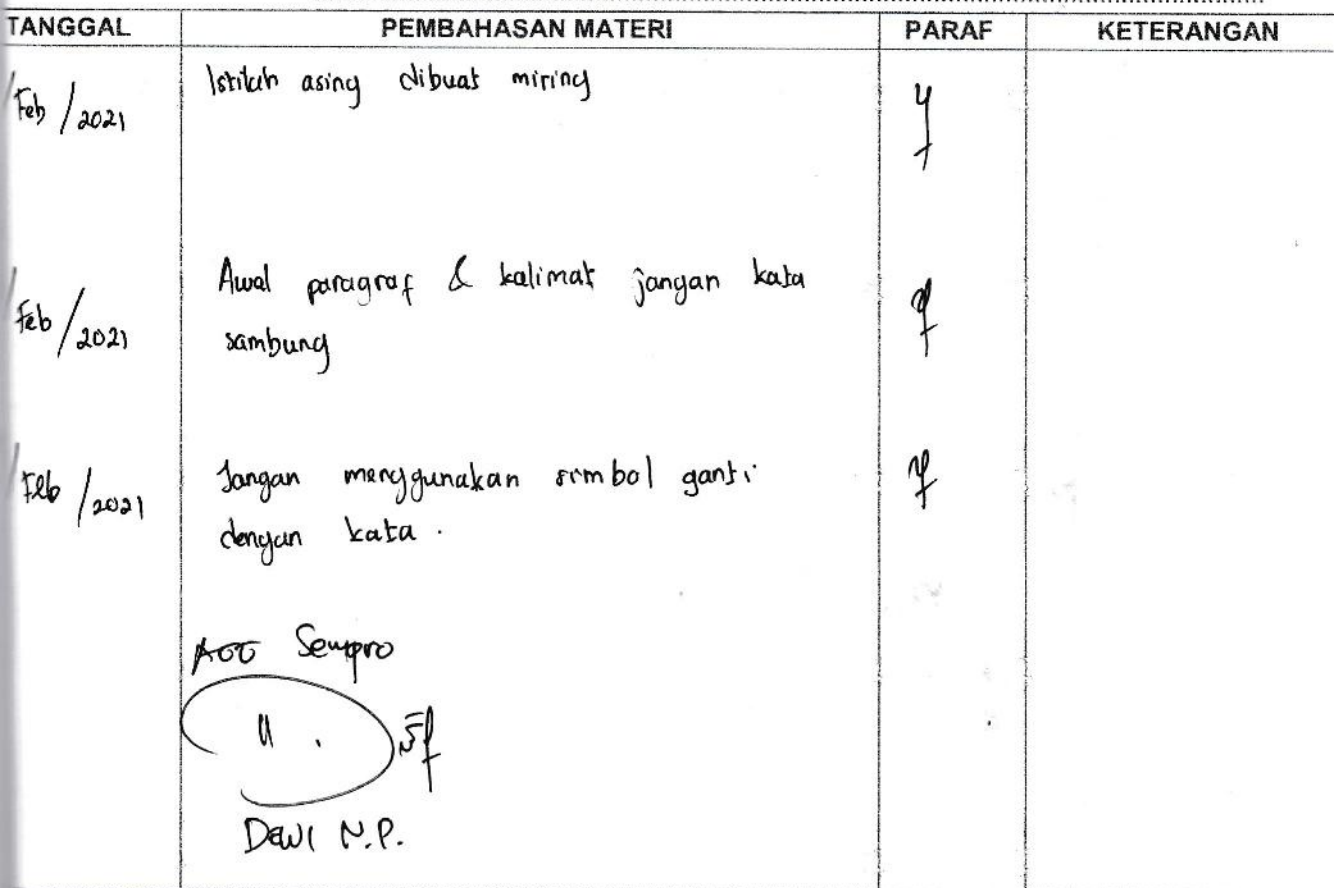 TANGGAL PEMBAHASAN MATERI PARAF KETERANGAN
Feb / 2021 Istilah asing dibuat miring
Feb / 2021 Awal paragraf & kalimat jangan kata
sambung
Feb / 2021 Jangan menggunakan simbol ganti
dengan kata .
ACC Sempro
Dewi N.P.